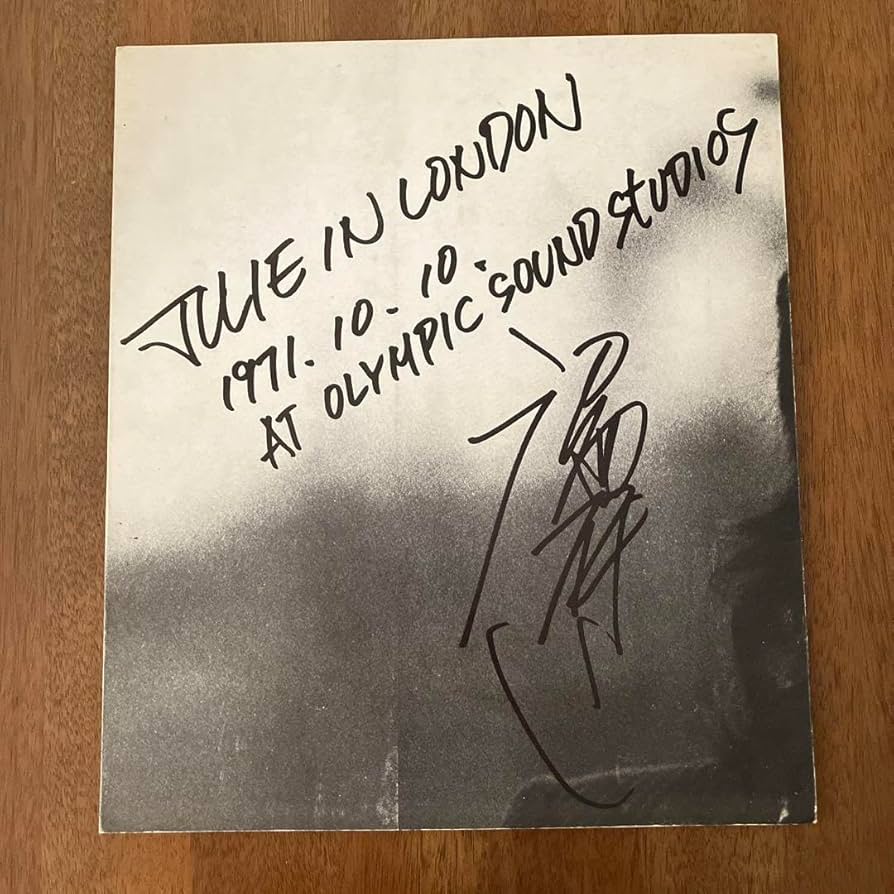 JULIE IN LONDON
1971.10.10.
AT OLYMPIC SOUND STUDIOS